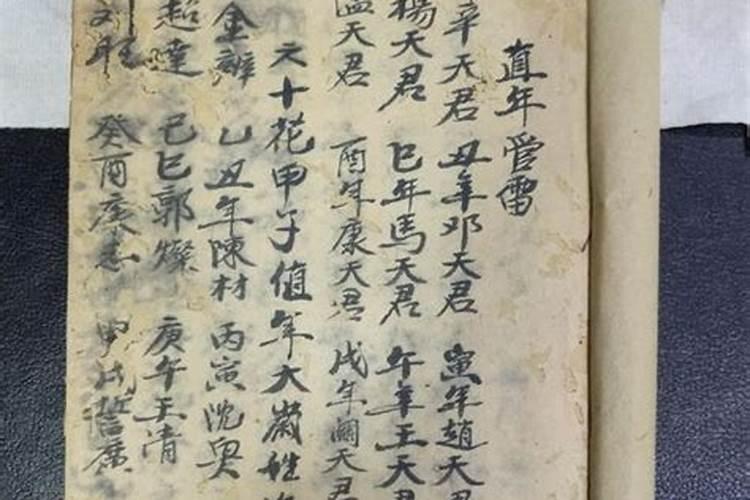 直年管雷
辛天君 丑年邓天君 寅年趙天君
楊天君 巳年馬天君 午年王天君
温天君 酉年康天君 戌年關天君
六十花甲子值年大歲姓
金辦 乙丑年陳材 丙寅沈㒞
超達 己巳郭燦 庚午王清
刘旺 癸酉康志 甲戌誓廣